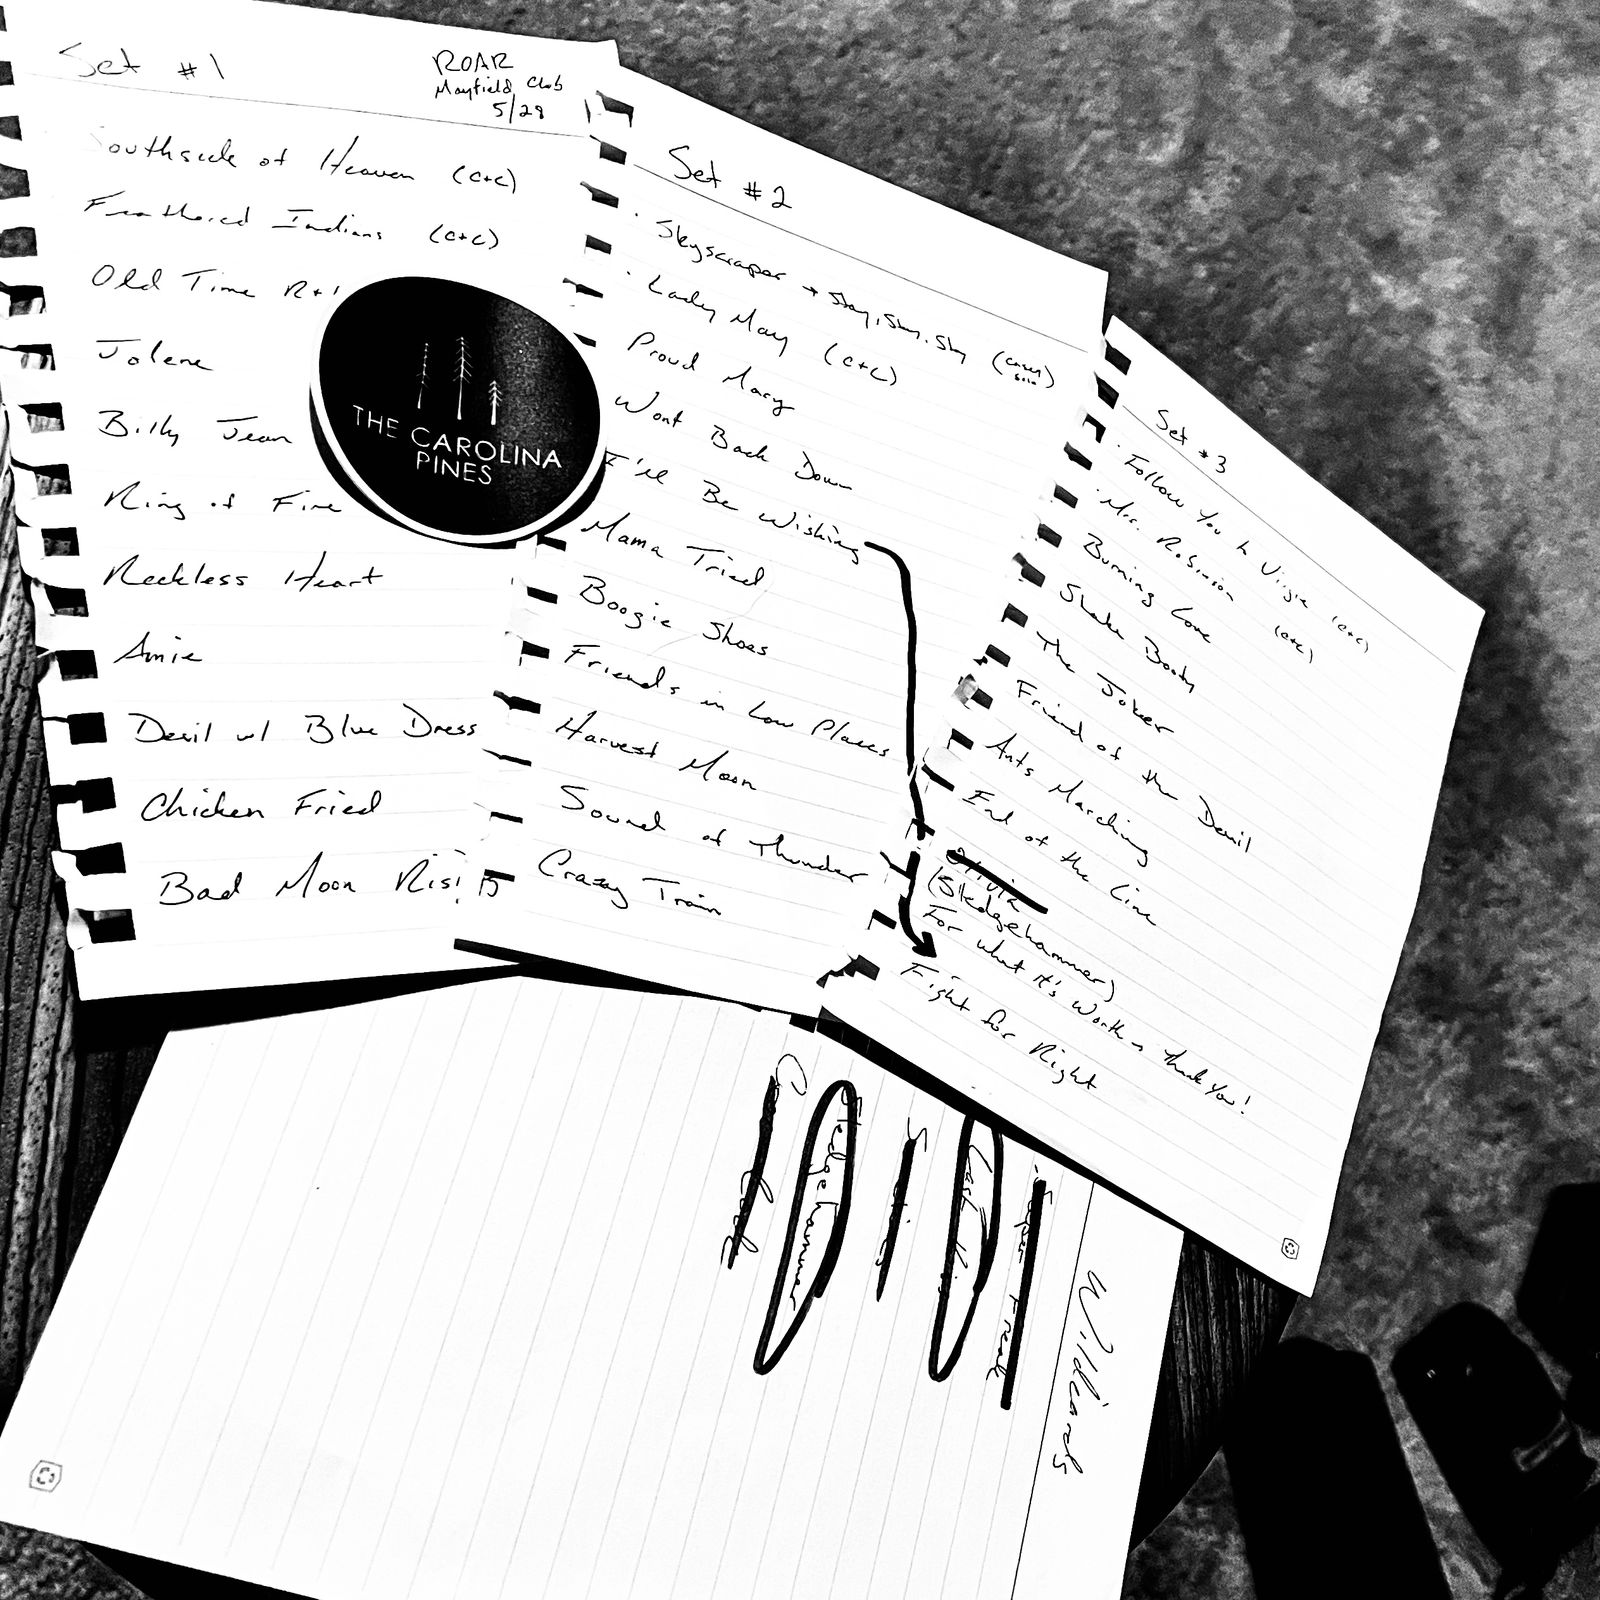 Set #1
ROAR
Mayfield Club
5/28
Southside of Heaven (c+c)
Feathered Indians (c+c)
Old Time R+
Jolene
Billy Jean
Ring of Fire
Reckless Heart
Amie
Devil w/ Blue Dress
Chicken Fried
Bad Moon Rising
THE CAROLINA
PINES
Set #2
Skyscraper → Stay, Stay, Stay (casey solo)
Lady May (c+c)
Proud Mary
Wont Back Down
I'll Be Wishing
Mama Tried
Boogie Shoes
Friends in Low Places
Harvest Moon
Sound of Thunder
Crazy Train
Set #3
Follow You to Virgie (c+c)
Mrs. Robinson (c+c)
Burning Love
Shake Booty
The Joker
Friend of the Devil
Ants Marching
End of the Line
Olivia
(Sledgehammer)
For what it's Worth → Thank You!
Fight for Right
Wildcards
Super Freak
Last
Sledgehammer